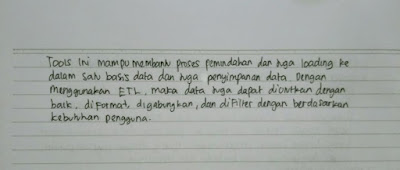 Tools Ini mampu membantu proses pemindahan dan juga loading ke
dalam satu basis data dan juga penyimpanan data. Dengan
menggunakan ETL, maka data juga dapat diurutkan dengan
baik, diformat, digabungkan, dan difilter dengan berdasarkan
kebutuhan pengguna.